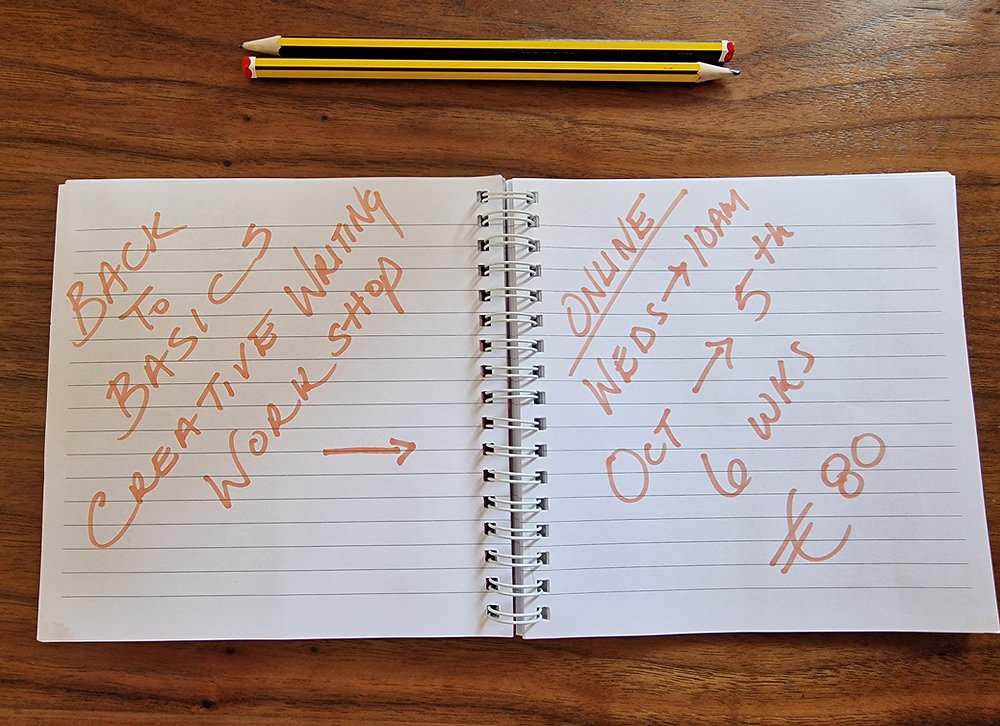 BACK
TO
BASICS
CREATIVE WRITING
WORKSHOP
→
ONLINE
WEDS → 10AM
OCT → 5th
6 WKS
€80